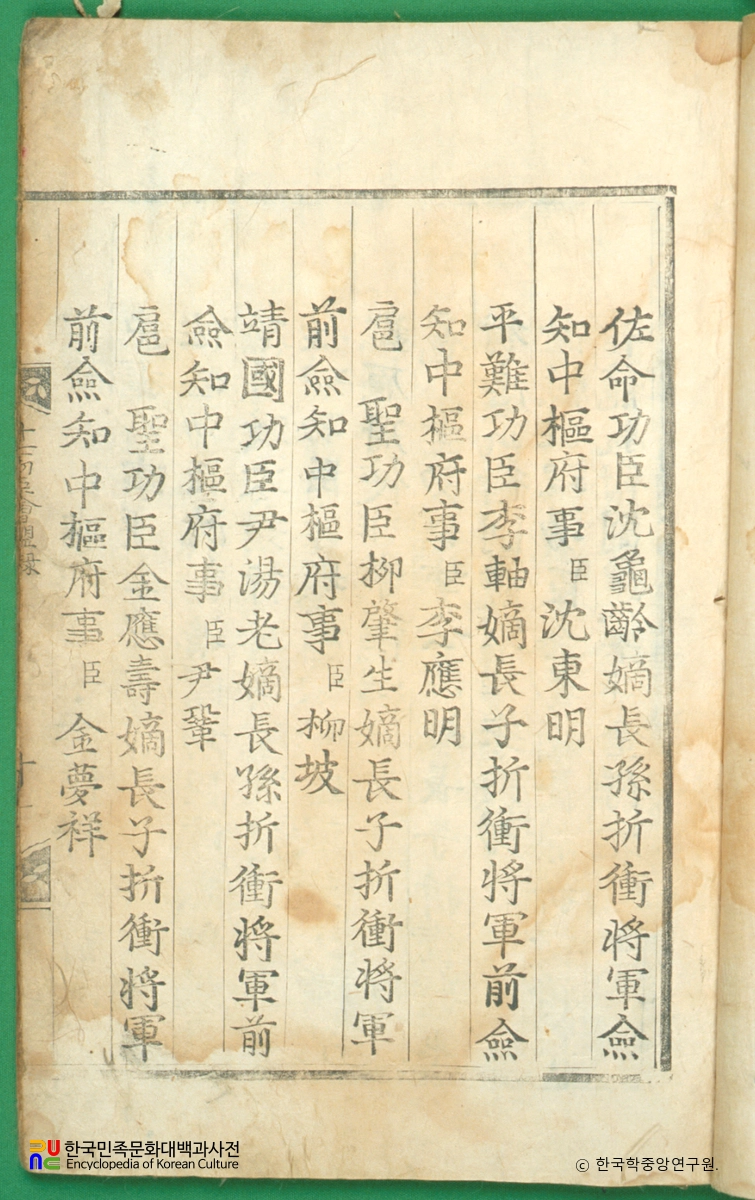 佐命功臣沈龜齡嫡長孫折衝將軍僉
知中樞府事臣沈東明
平難功臣李軸嫡長子折衝將軍前僉
知中樞府事臣李應明
扈聖功臣柳肇生嫡長子折衝將軍
前僉知中樞府事臣柳坡
靖國功臣尹湯老嫡長孫折衝將軍前
僉知中樞府事臣尹鞏
扈聖功臣金應壽嫡長子折衝將軍
前僉知中樞府事臣金夢祥
한국민족문화대백과사전
Encyclopedia of Korean Culture
© 한국학중앙연구원.